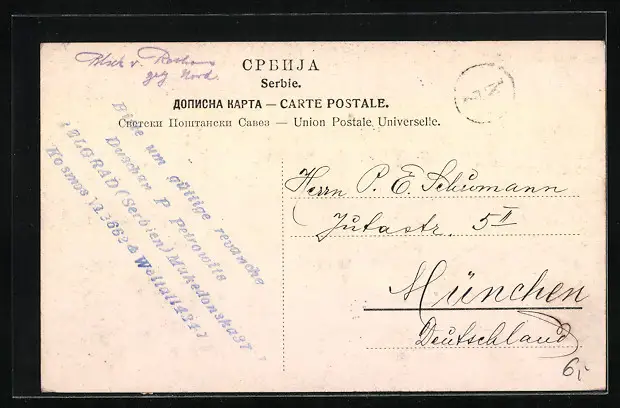 Blick v.
geg Nord.
СРБИЈА
Serbie.
ДОПИСНА КАРТА — CARTE POSTALE.
Светски Поштански Савез — Union Postale Universelle.
Bitte um gütlige revanche
Duschan P. Petrowits
BELGRAD (Serbien) Makedonska 37
Kosmos 13662 & Weltall 4241
Herrn P. E. Schumann
Jutastr. 5 II
München
Deutschland
6,-